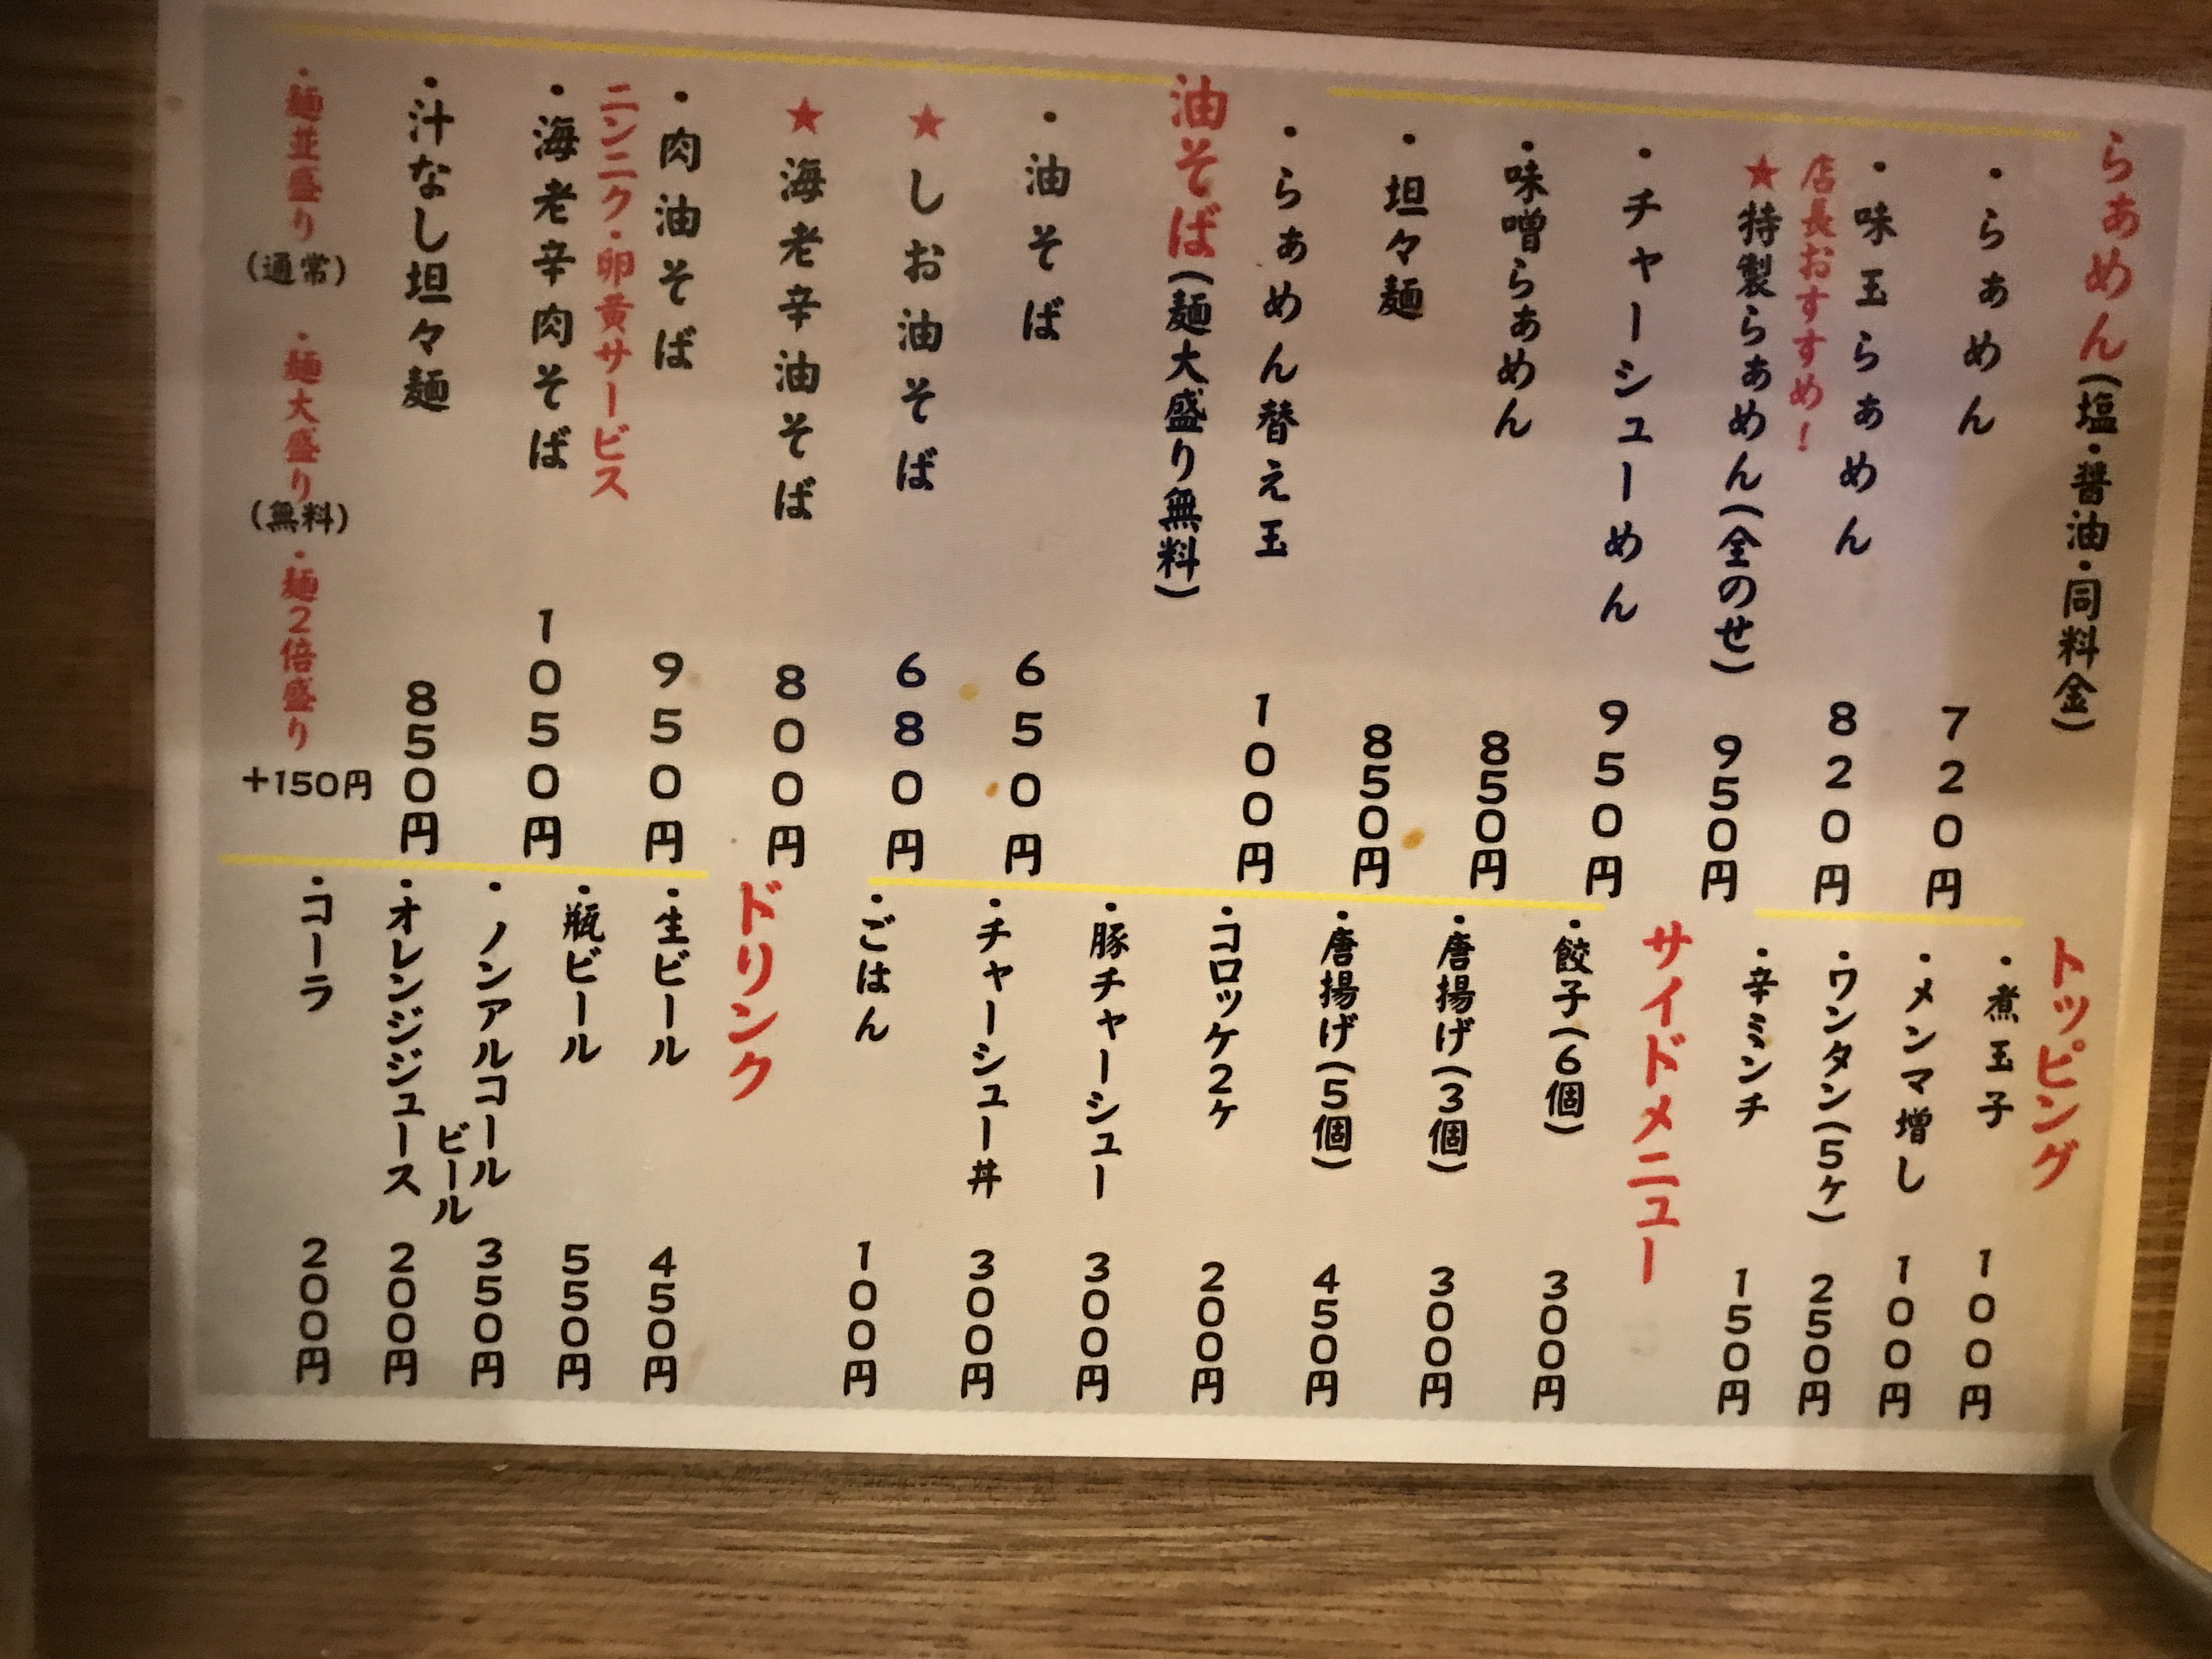 らぁめん(塩・醤油・同料金)
・らぁめん 720円
・味玉らぁめん 820円
店長おすすめ!
★特製らぁめん(全のせ) 950円
・チャーシューめん 950円
・味噌らぁめん 850円
・坦々麺 850円
・らぁめん替え玉 100円
油そば(麺大盛り無料)
・油そば 650円
★しお油そば 680円
★海老辛油そば 800円
・肉油そば 950円
ニンニク・卵黄サービス
・海老辛肉そば 1050円
・汁なし坦々麺 850円
・麺並盛り(通常) ・麺大盛り(無料) ・麺2倍盛り +150円
トッピング
・煮玉子 100円
・メンマ増し 100円
・ワンタン(5ヶ) 250円
・辛ミンチ 150円
サイドメニュー
・餃子(6個) 300円
・唐揚げ(3個) 300円
・唐揚げ(5個) 450円
・コロッケ2ヶ 200円
・豚チャーシュー 300円
・チャーシュー丼 300円
・ごはん 100円
ドリンク
・生ビール 450円
・瓶ビール 550円
・ノンアルコール
ビール 350円
・オレンジジュース 200円
・コーラ 200円